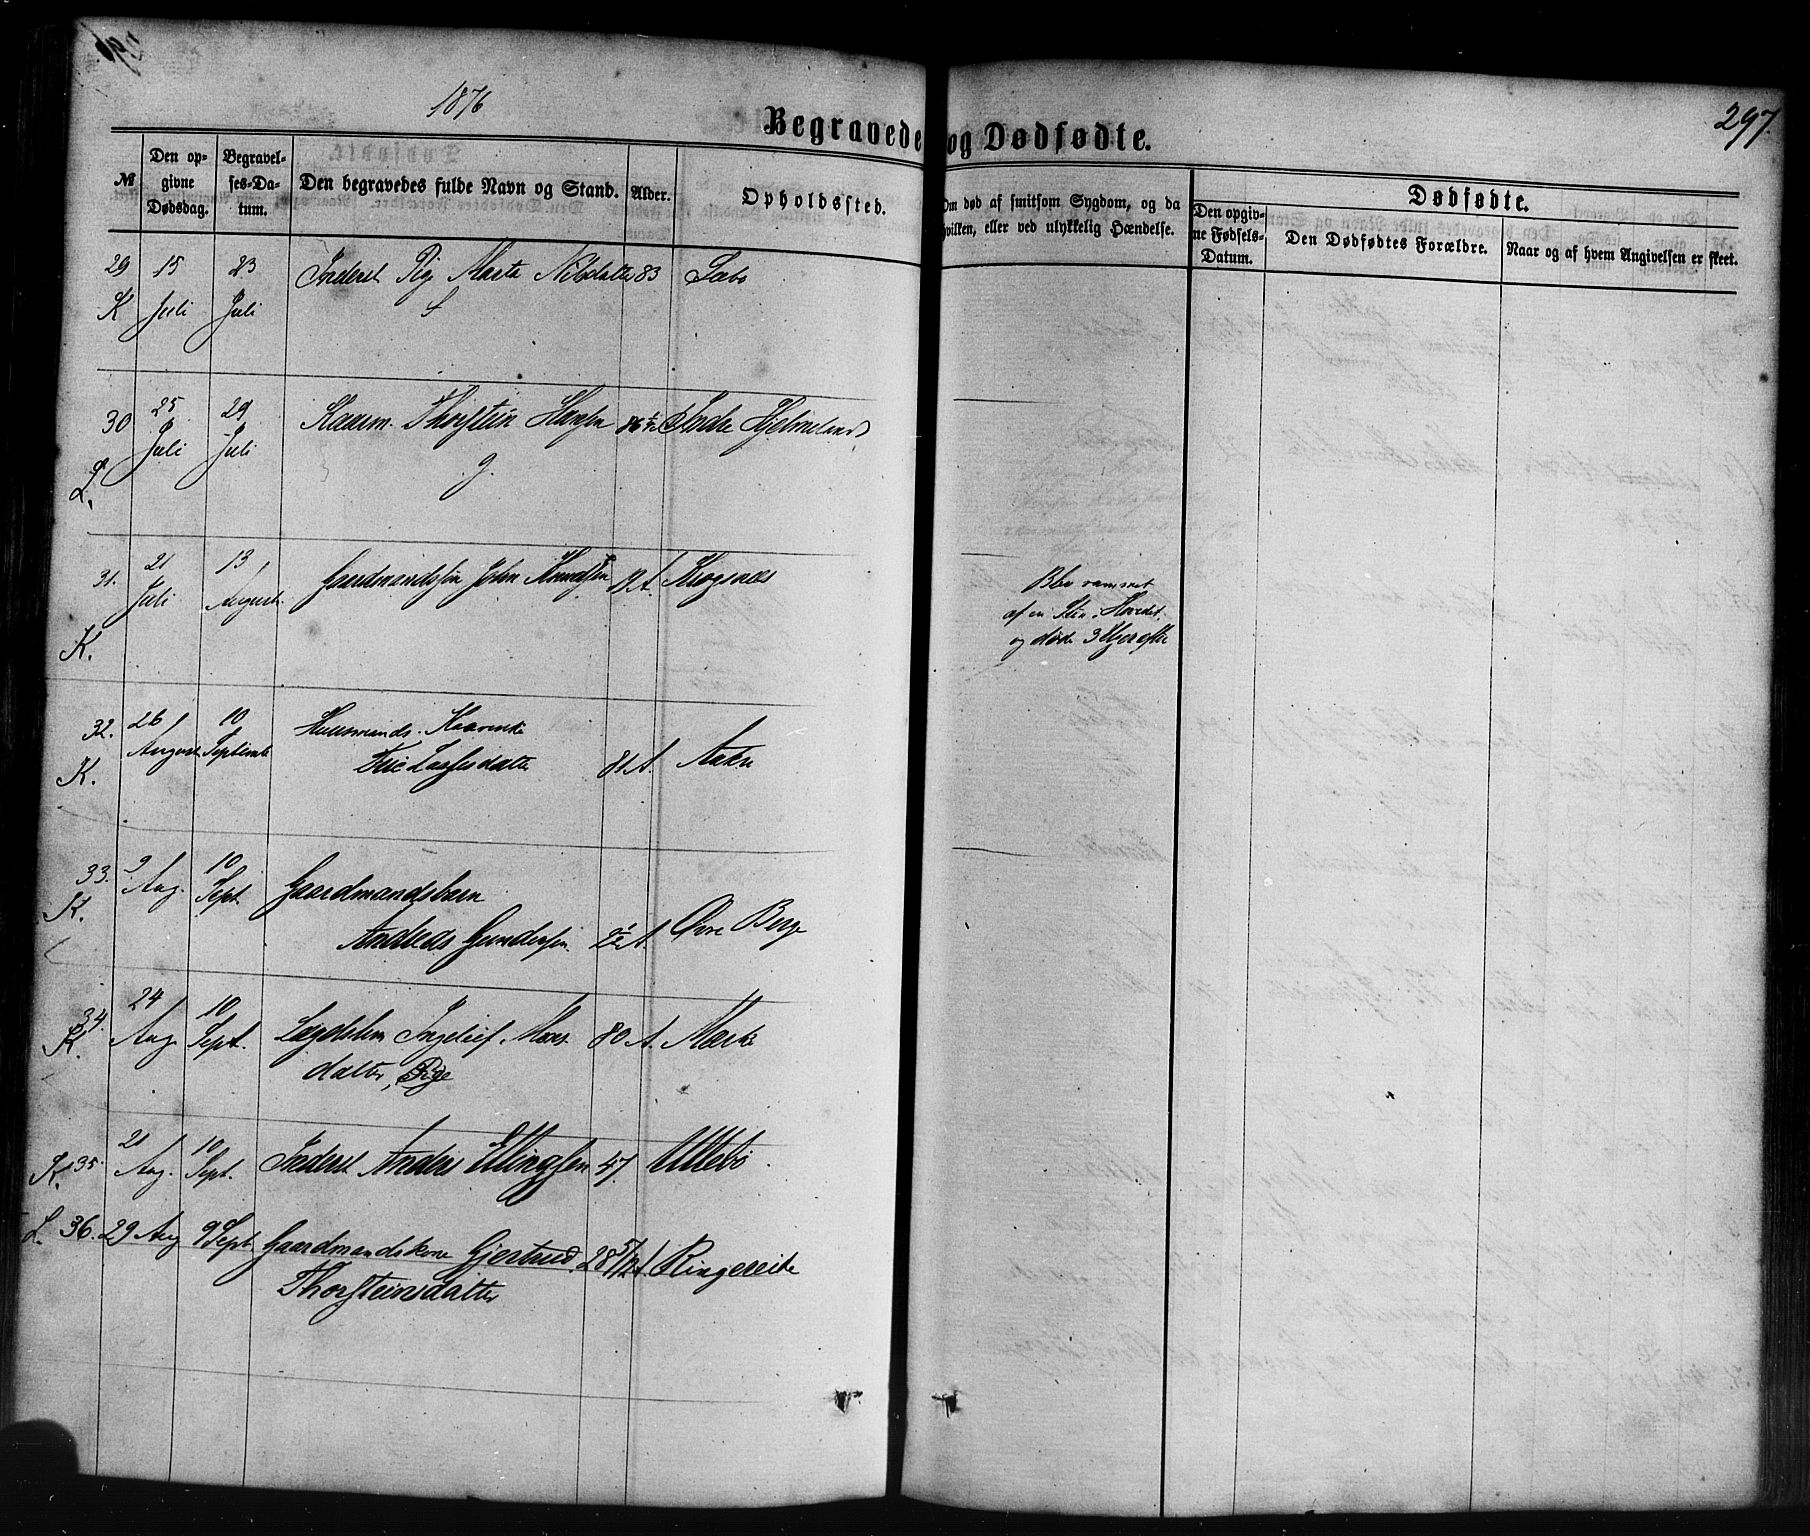 1876
297.
Begravede og Dødfødte.
№ Den opgivne Dødsdag. Begravelses-Datum. Den begravedes fulde Navn og Stand. Alder. Opholdssted. Om død af smitsom Sygdom, og da hvilken, eller ved ulykkelig Hændelse. Dødfødte.
Den opgivne Fødsels-Datum. Den Dødfødtes Forældre. Naar og af hvem Angivelsen er skeet.
29 15 23 Inderst Pige Marta Nilsdatter 83 Sæbø
K Juli Juli
30 25 29 Kaarm. Thorstein Hansen 86 Indre Hjelmeland
Juli Juli
L.
31. 21 13 Gaardmandssøn John Knudsen A. Krogsnæs Blev rammet
Juli August af en Sten i Hovedet
K. og døde 3 Uger efter
32. 26 10 Huusmands-Kaarenke
August Septemb Larsdatter 81 A. Aaken
K.
33. 9 10 Gaardmandsbarn
K. Aug. Sept. Andreas Gundersen 2½ A. Øvre Berge
34. 24 10 Lægdslem Ingelief Mons- 80 A. Mæske
K. Aug Sept. datter, Pige
K. 35. 21 10 Inderst Anders Ellingsen 47 Ullebø
Aug. Sept.
L. 36. 29 Aug 9 Sept Gaardmandskone Gjertrud 28 5/12 A. Ringereite
Thorsteinsdatter